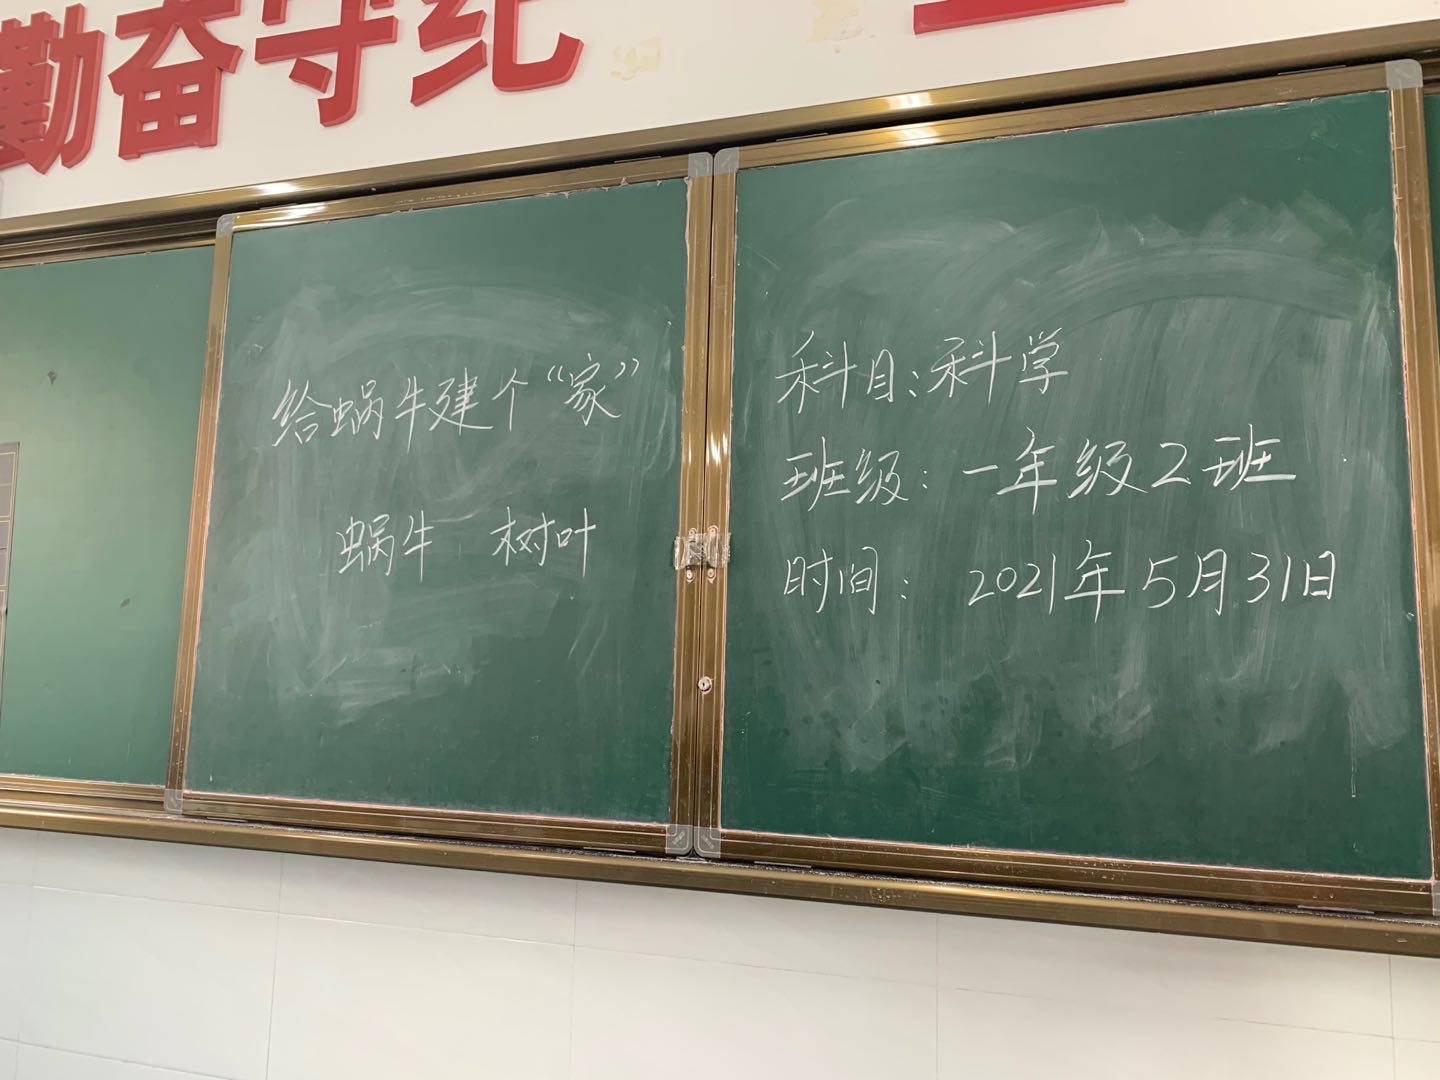 勤奋守纪
给蜗牛建个“家”
蜗牛 树叶
科目:科学
班级: 一年级2班
时间: 2021年5月31日